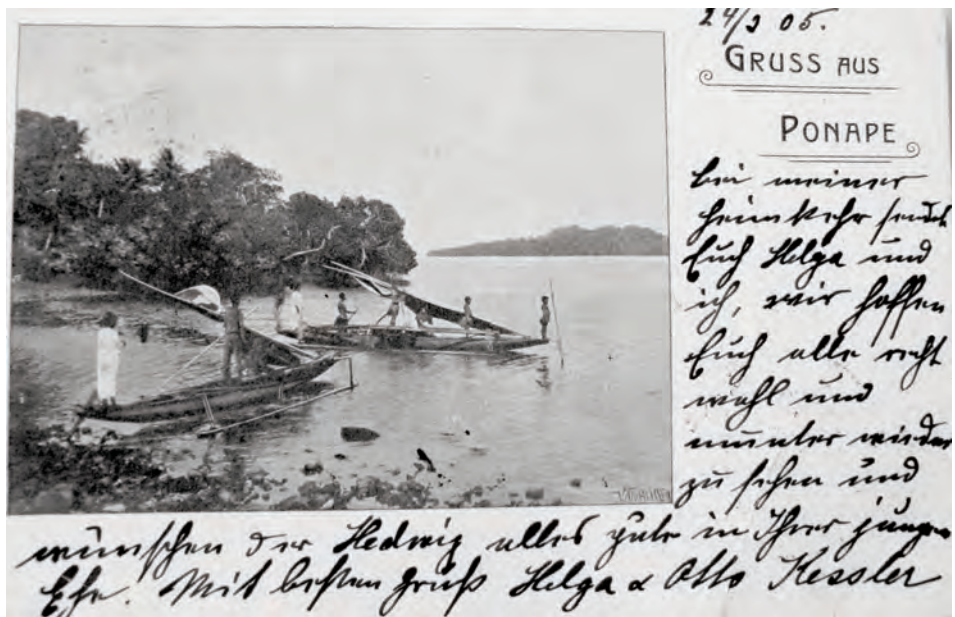 24/3 05.
GRUSS AUS
PONAPE
bei meiner
Heimkehr sendet
Euch Helga und
ich, wir hoffen
Euch alle recht
wohl und
munter wieder
zu sehen und
wünschen der Hedwig alles gute in Ihrer jungen
Ehe. Mit besten Gruß Helga & Otto Kessler